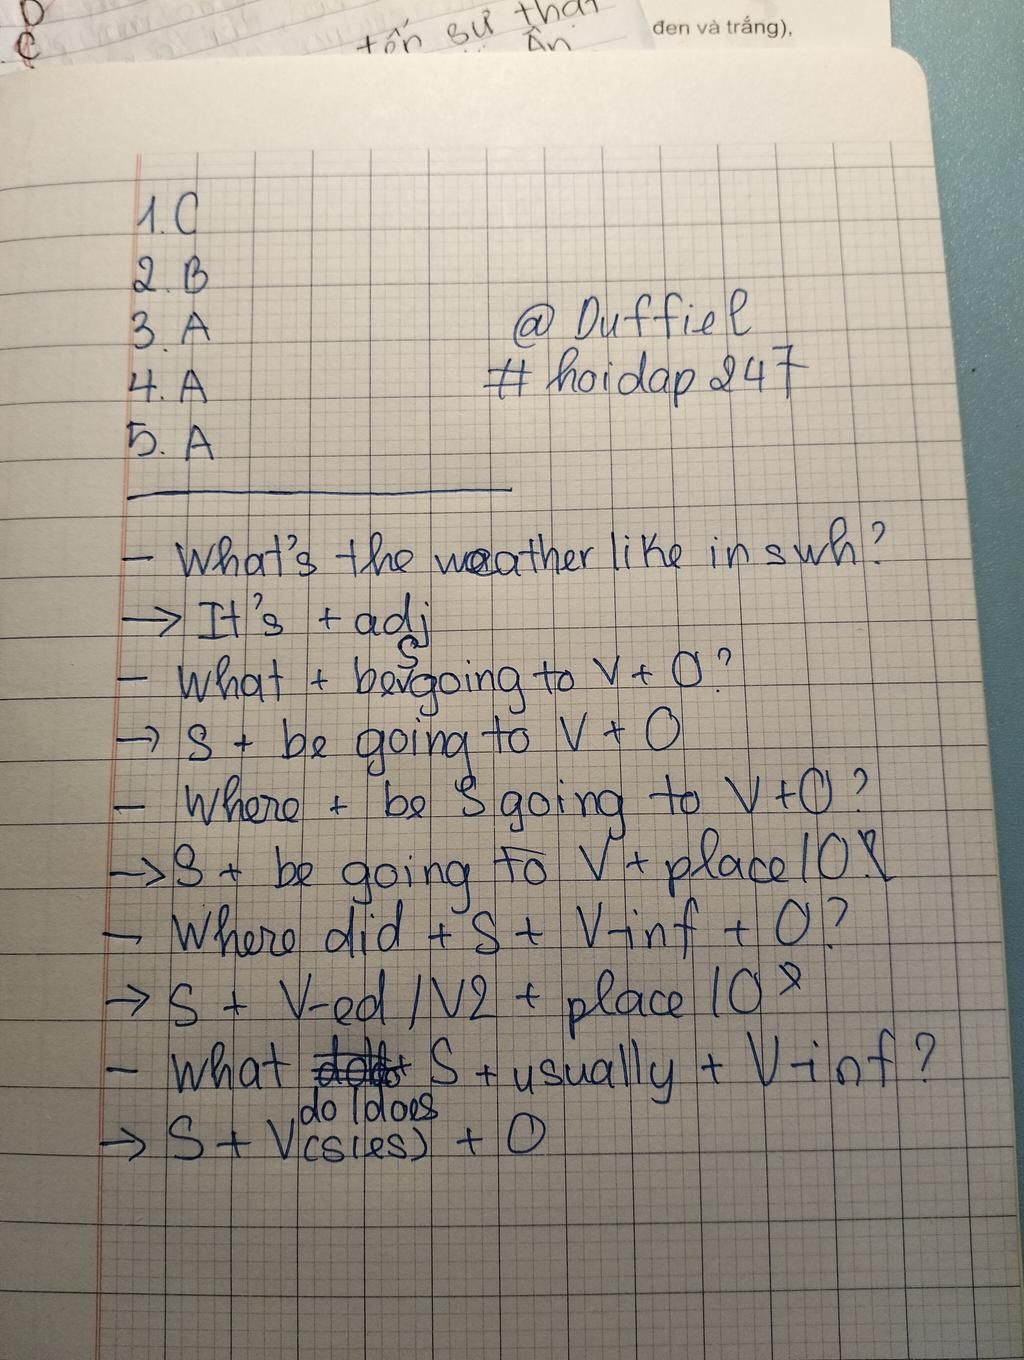 D
C
tốn sư thật
ẩn
đen và trắng),
1. C
2. B
3. A
4. A
5. A
@ Duffiel
# hoidap 247
- What's the weather like in swh?
→ It's + adj
- What + be S going to V + O?
→ S + be going to V + O
- Where + be S going to V+O?
→ S + be going to V + place / O
- Where did + S + V-inf + O?
→ S + V-ed / V2 + place / O
- What do/does S + usually + V-inf?
→ S + V(s/es) + O